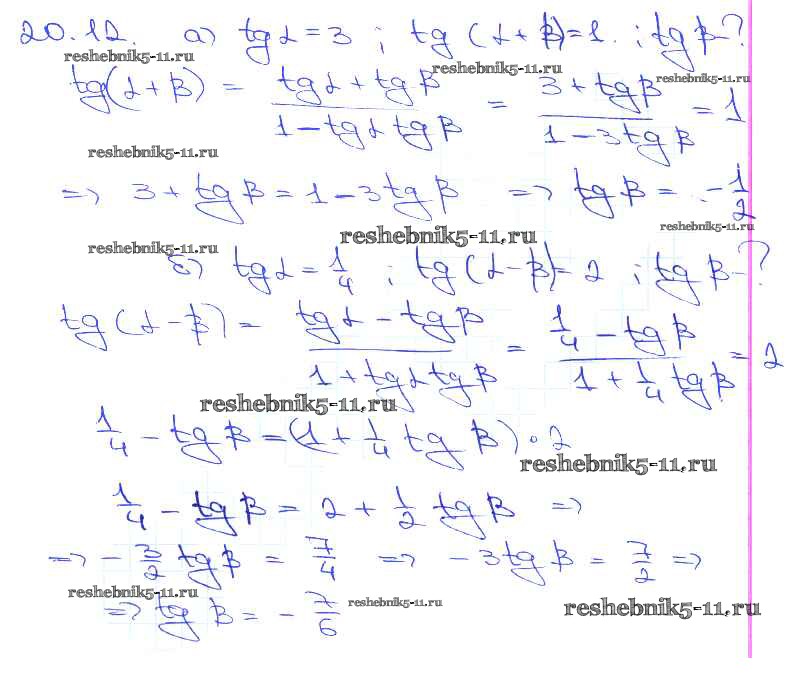 20.12. а) tg α = 3 ; tg (α + β) = 1. ; tg β - ?
reshebnik5-11.ru
reshebnik5-11.ru
reshebnik5-11.ru
tg(α + β) = (tg α + tg β)/(1 - tg α tg β) = (3 + tg β)/(1 - 3 tg β) = 1
reshebnik5-11.ru
=> 3 + tg β = 1 - 3 tg β => tg β = - 1/2
reshebnik5-11.ru
reshebnik5-11.ru
reshebnik5-11.ru
б) tg α = 1/4 ; tg (α - β) = 2 ; tg β - ?
tg (α - β) = (tg α - tg β)/(1 + tg α tg β) = (1/4 - tg β)/(1 + 1/4 tg β) = 2
reshebnik5-11.ru
1/4 - tg β = (1 + 1/4 tg β) · 2
reshebnik5-11.ru
1/4 - tg β = 2 + 1/2 tg β =>
=> - 3/2 tg β = 7/4 => - 3 tg β = 7/2 =>
reshebnik5-11.ru
reshebnik5-11.ru
reshebnik5-11.ru
=> tg β = - 7/6